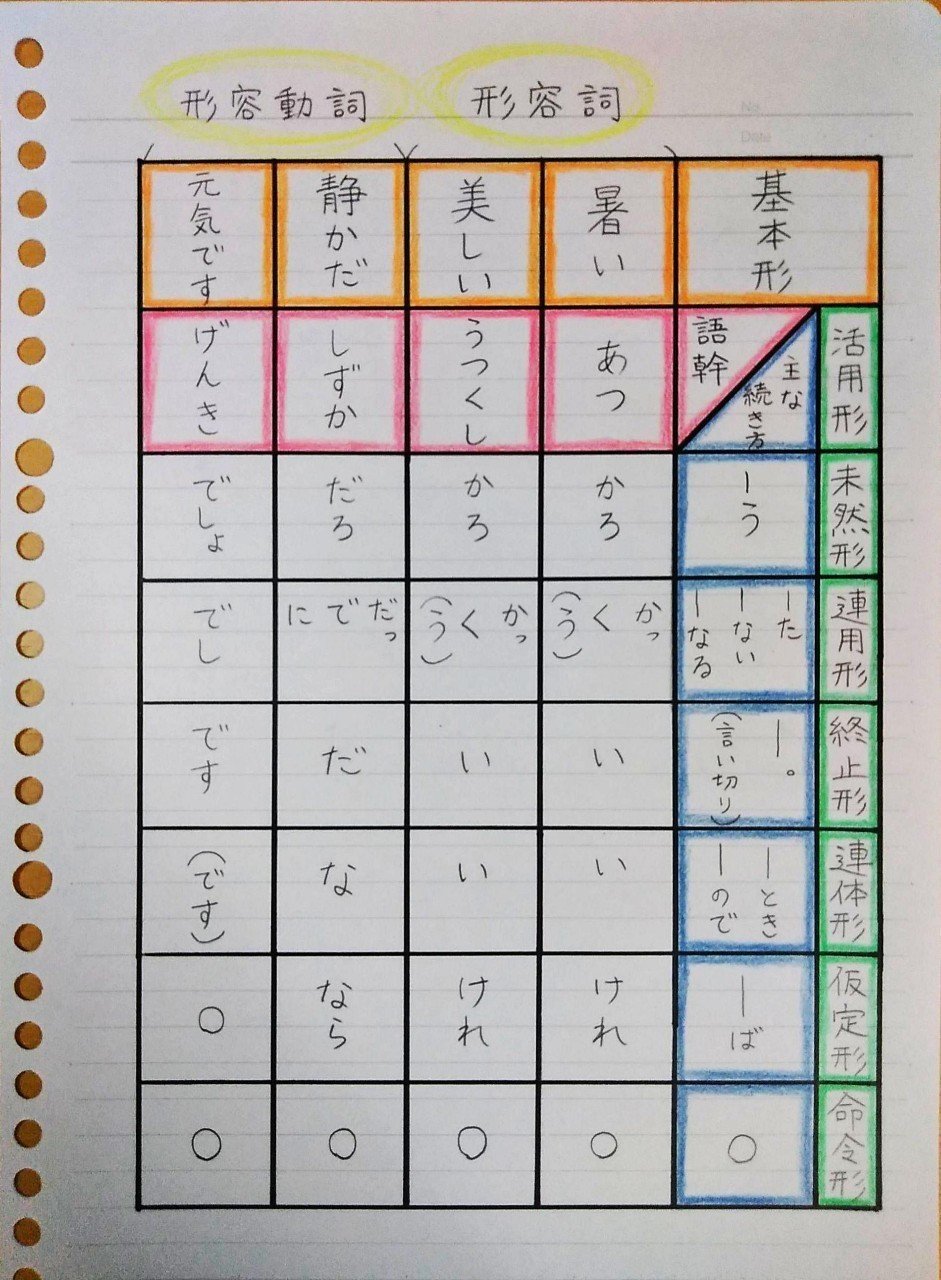 形容詞
形容動詞
No.
Date
基本形
暑い
美しい
静かだ
元気です
活用形
主な
続き方
語幹
あつ
うつくし
しずか
げんき
未然形
ーう
かろ
かろ
だろ
でしょ
連用形
ーた
ーない
ーなる
かっ
く
(う)
かっ
く
(う)
だっ
で
に
でし
終止形
ー。
(言い切り)
い
い
だ
です
連体形
ーとき
ーので
い
い
な
(です)
仮定形
ーば
けれ
けれ
なら
○
命令形
○
○
○
○
○